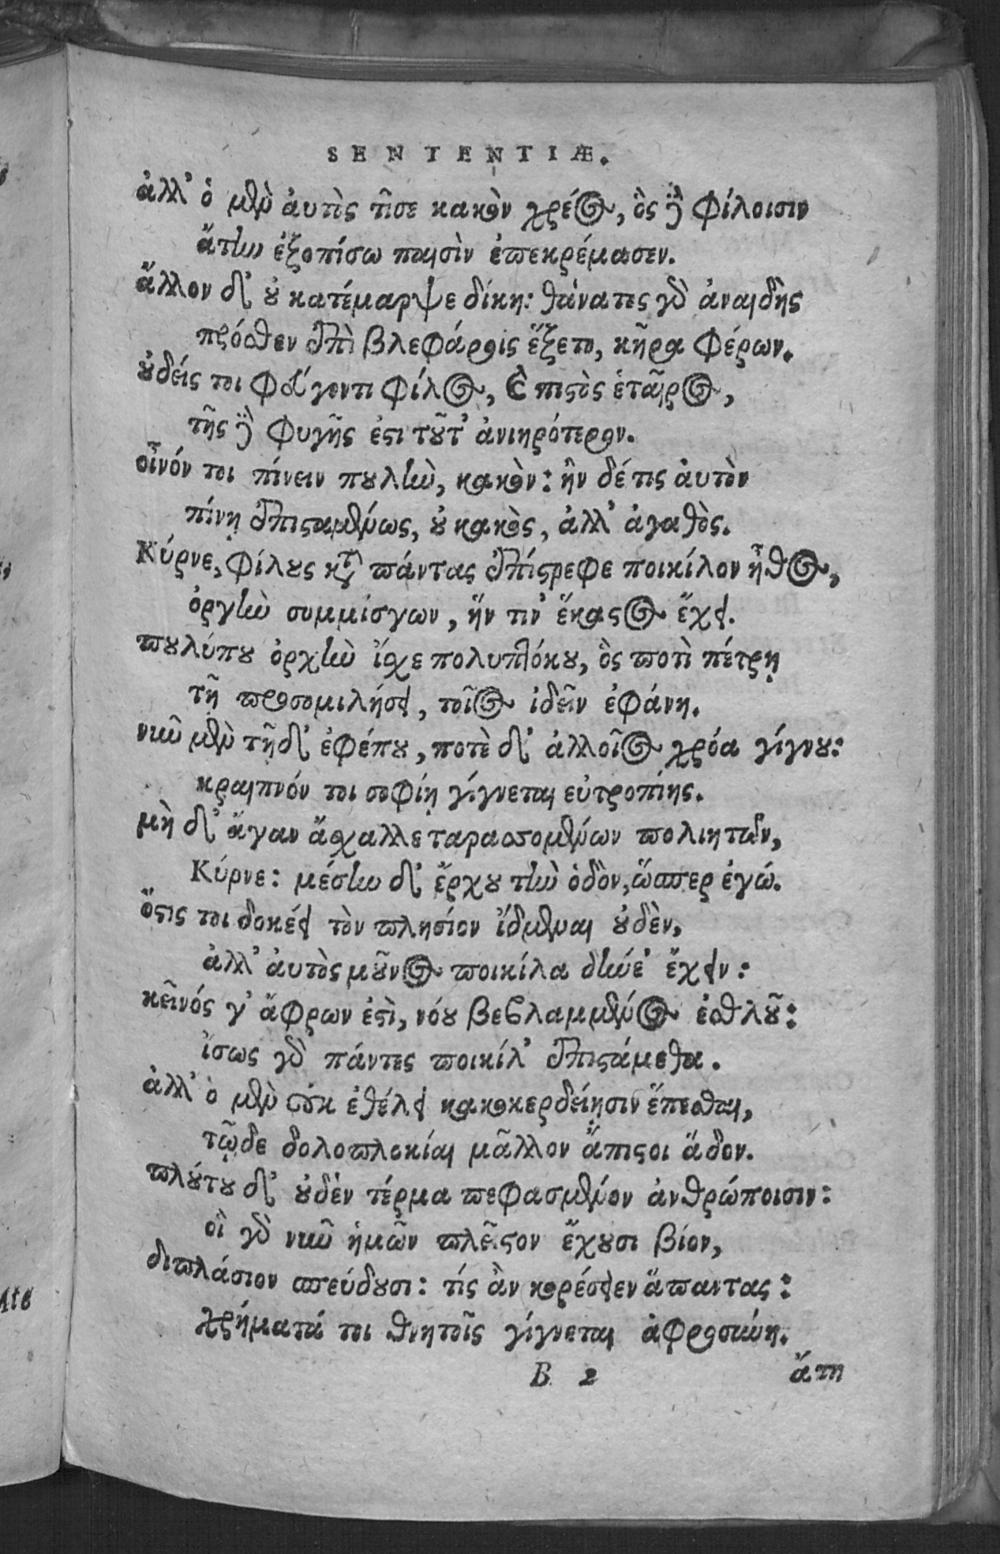 SENTENTIÆ.
ἀλλ' ὁ μὲν ἀυτὸς τῖσε κακὸν χρέος, ὃς δὲ φίλοισιν
ἄτην ἐξοπίσω παισὶν ἐπεκρέμασεν.
ἄλλον δ' οὐ κατέμαρψε δίκη: θάνατος γὰρ ἀναιδὴς
πρόσθεν ἐπὶ βλεφάροις ἕξετο, κῆρα φέρων.
οὐδείς τοι φεύγοντι φίλος, καὶ πιστὸς ἑταῖρος,
τῆς δὲ φυγῆς ἐστι τοῦτ' ἀνιηρότερον.
οἶνόν τοι πίνειν πουλὺν, κακὸν: ἢν δέ τις ἀυτὸν
πίνῃ ἐπισταμένως, οὐ κακὸς, ἀλλ' ἀγαθὸς.
Κύρνε, φίλους κατὰ πάντας ἐπίστρεφε ποικίλον ἦθος,
ὀργὴν συμμίσγων, ἥν τιν' ἕκαστος ἔχει.
πουλύπου ὀρχὴν ἴσχε πολυπλόκου, ὃς ποτὶ πέτρῃ
τῇ προσομιλήσει, τοῖος ἰδεῖν ἐφάνη.
νῦν μὲν τῇδ' ἐφέπου, ποτὲ δ' ἀλλοῖος χρόα γίγνου:
κραιπνόν τοι σοφίη γίγνεται εὐτροπίης.
μὴ δ' ἄγαν ἄσχαλλε ταρασσομένων πολιητῶν,
Κύρνε: μέσην δ' ἔρχου τὴν ὁδὸν, ὥσπερ ἐγώ.
ὅστις τοι δοκέει τὸν πλησίον ἴδμεναι οὐδὲν,
ἀλλ' ἀυτὸς μοῦνος ποικίλα δήνε' ἔχειν:
κεῖνός γ' ἄφρων ἐστὶ, νόου βεβλαμμένος ἐσθλοῦ:
ἴσως γὰρ πάντες ποικίλ' ἐπιστάμεθα.
ἀλλ' ὁ μὲν οὐκ ἐθέλει κακοκερδείησιν ἕπεσθαι,
τῷδε δολοπλοκίαι μᾶλλον ἄπιστοι ἅδον.
πλούτου δ' οὐδὲν τέρμα πεφασμένον ἀνθρώποισιν:
οἳ γὰρ νῦν ἡμῶν πλεῖστον ἔχουσι βίον,
διπλάσιον σπεύδουσι: τίς ἂν κορέσειεν ἅπαντας:
χρήματά τοι θνητοῖς γίγνεται ἀφροσύνη.
B 2 ἄτη